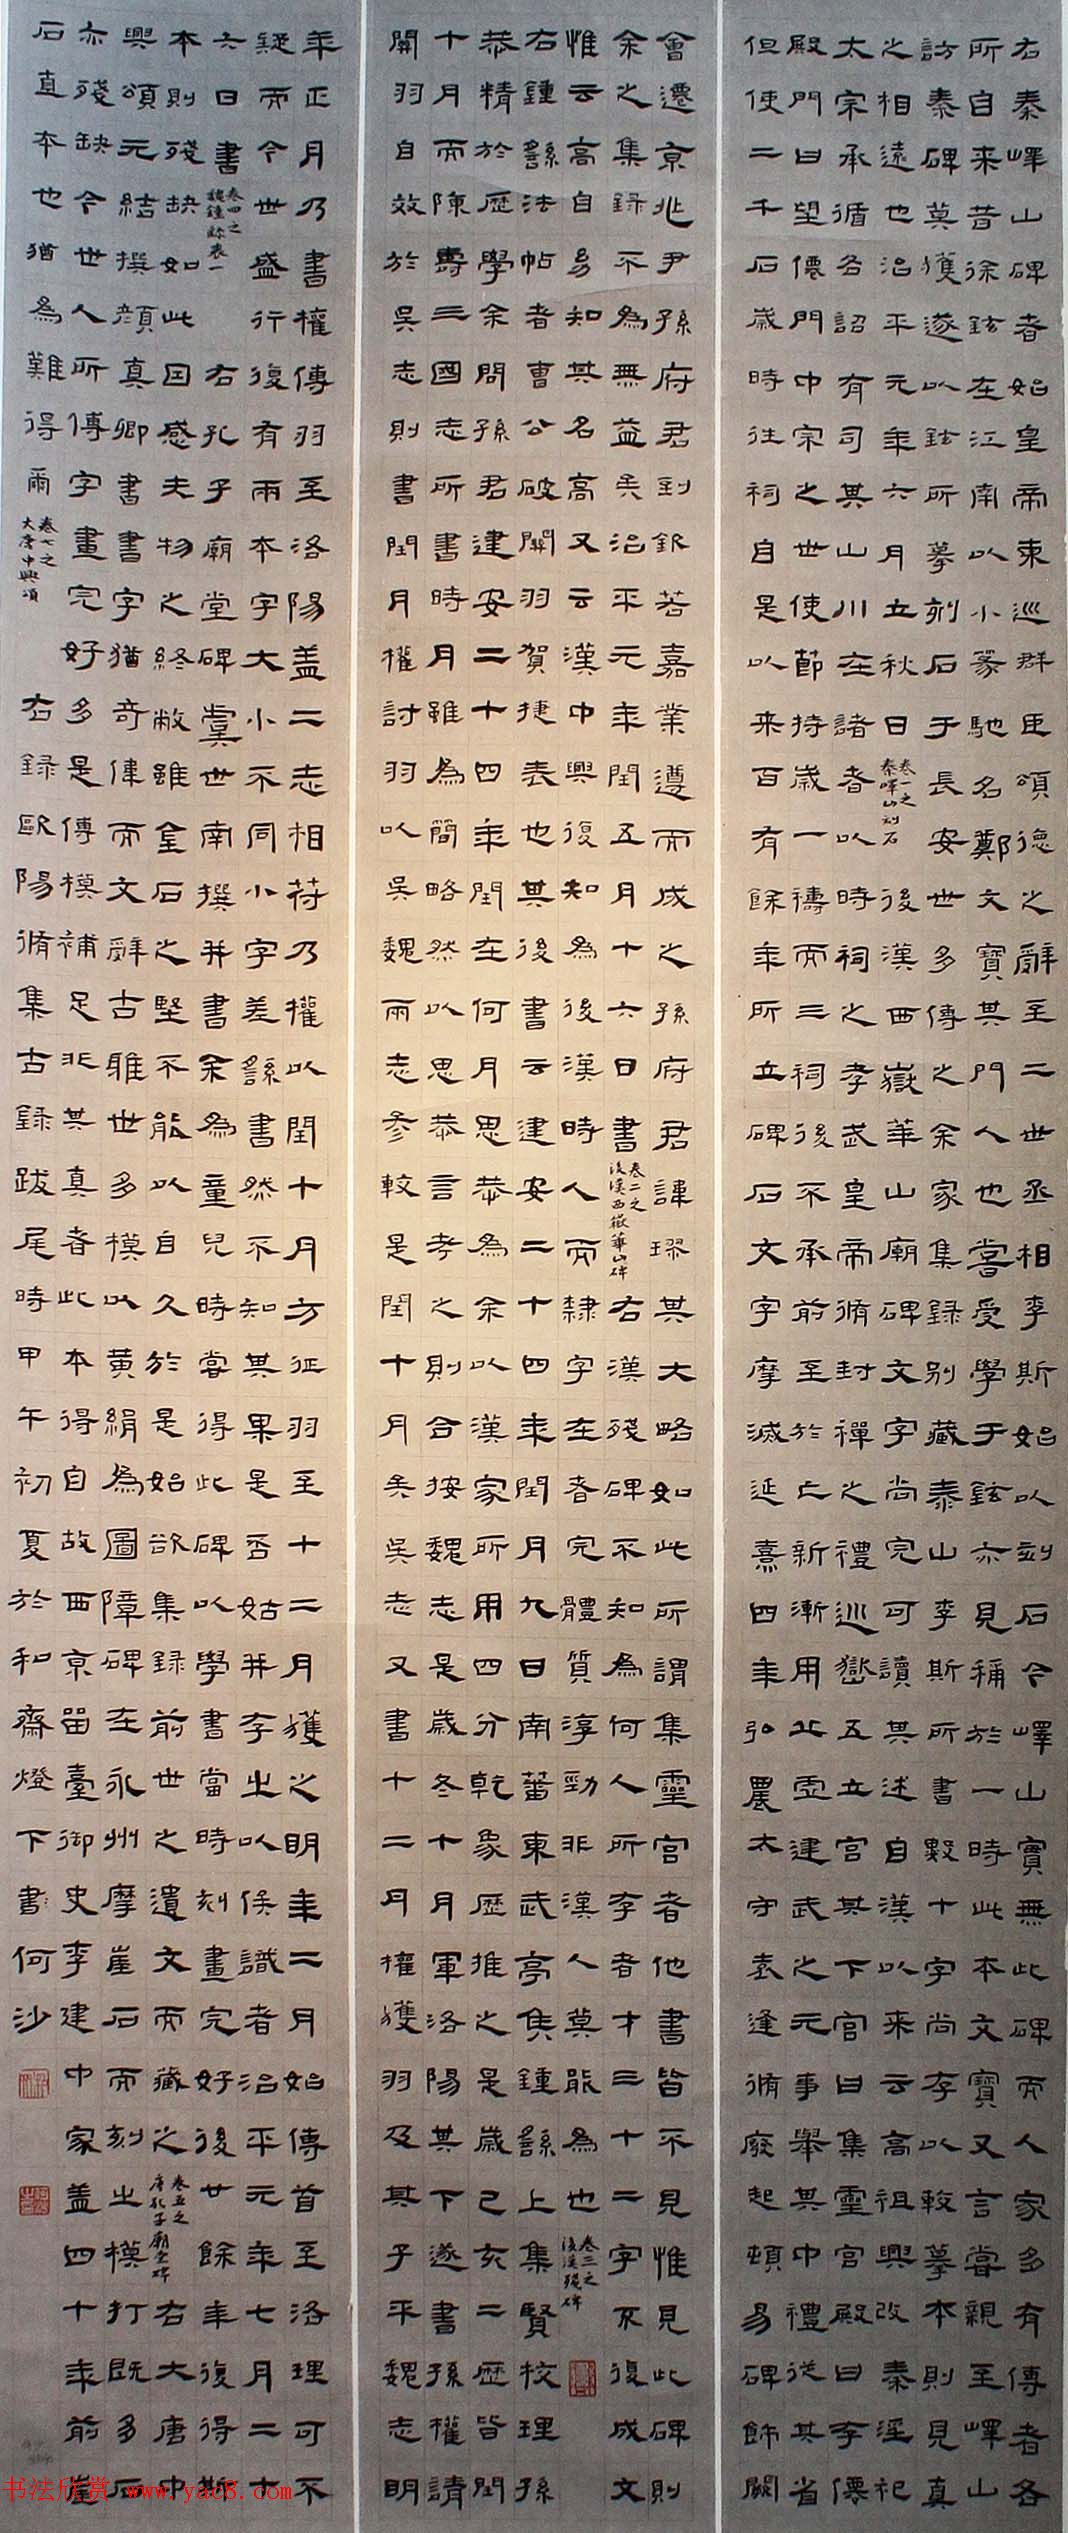 右秦嶧山碑者始皇帝東巡群臣頌德之辭至二世丞相李斯始以刻石今嶧山實無此碑而人家多有傳者各
所自来昔徐鉉在江南以小篆馳名鄭文寶其門人也嘗受學于鉉亦見稱於一時此本文寶又言嘗親至嶧山
訪秦碑莫獲遂以鉉所摹刻石于長安世多傳之余家集録別藏泰山李斯所書數十字尚存以較摹本則見真
之相遠也治平元年六月立秋日卷一之秦嶧山刻石後漢西嶽華山廟碑文字尚完可讀其述自漢以来云高祖興改秦淫祀
太宗承循各詔有司其山川在諸者以時祠之孝武皇帝脩封禪之禮巡嶽五立宮其下官曰集靈宮殿曰存僊
殿門曰望僊門中宗之世使節持歲一禱而三祠後不承前至於亡新漸用丘虚建武之元事舉其中禮從其省
但使二千石歲時往祠自是以来百有餘年所立碑石文字摩滅延熹四年弘農太守袁逢脩廢起頓易碑飾闕
會遷京兆尹孫府君到欽若嘉業遵而成之孫府君諱璆其大略如此所謂集靈宮者他書皆不見惟見此碑則
余之集録不為無益矣治平元年閏五月十六日書卷二之後漢西嶽華山碑右漢殘碑不知為何人所存者才三十二字不復成文
惟云高自易知其名高又云漢中興復知為後漢時人而隸字在者完體質淳勁非漢人莫能為也卷三之後漢殘碑
右鍾繇法帖者曹公破關羽賀捷表也其後書云建安二十四年閏月九日南蕃東武亭侯鍾繇上集賢校理孫
恭精於歷學余問孫君建安二十四年閏在何月思恭為余以漢家所用四分乾象歷推之是歲己亥二歷皆閏
十月而陳壽三國志所書時月雖為簡略然以思恭言考之則合按魏志是歲冬十月軍洛陽其下遂書孫權請
關羽自效於吳志則書閏月權討羽以吳魏兩志參較是閏十月矣吳志又書十二月權獲羽及其子平魏志明
年正月乃書權傳羽至洛陽蓋二志相符乃權以閏十月方征羽至十二月獲之明年二月始傳首至洛理可不
疑而今世盛行復有兩本字大小不同小字差繇書然不知其果是否姑并存之以俟識者治平元年七月二十
六日書卷四之魏鍾繇表一右孔子廟堂碑虞世南撰并書余為童兒時嘗得此碑以學書當時刻畫完好後廿餘年復得斯
本則殘缺如此因感夫物之終敝雖金石之堅不能以自久於是始欲集録前世之遺文而藏之卷五之唐孔子廟堂碑右大唐中
興頌元結撰顔真卿書書字猶奇偉而文辭古雅世多模以黄絹為圖障碑在永州摩崖石而刻之模打既多石
亦殘缺今世人所傳字畫完好多是傳模補足非其真者此本得自故西京留臺御史李建中家蓋四十年前崖
石直本也猶為難得爾卷七之大唐中興頌右録歐陽脩集古録跋尾時甲午初夏於和齋燈下書何沙
书法欣赏 www.yac8.com